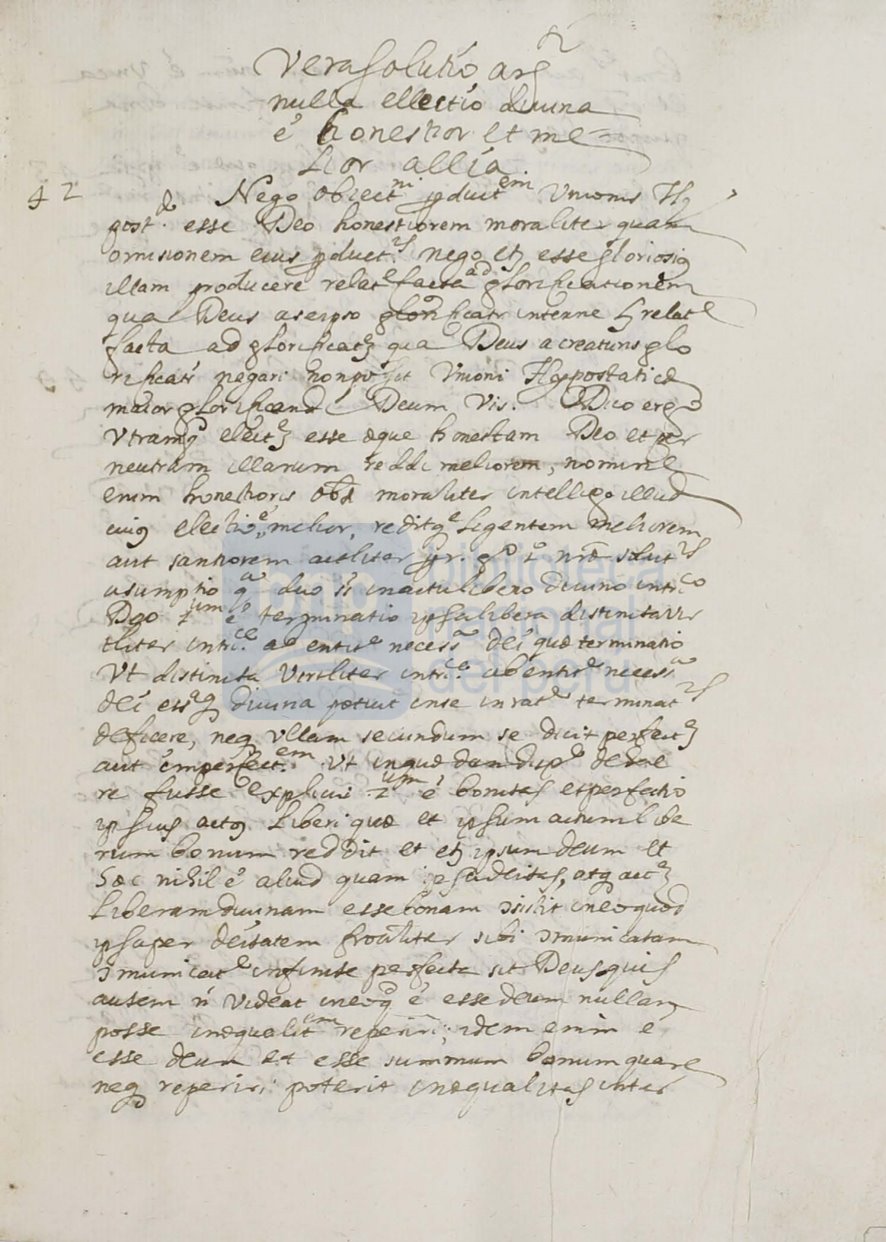 Vera solutio arg
nulla ellectio divina
é honestior et me=
lior allía
42 Nego obiectni productem Unionis Hy
post. esse Deo honestiorem moraliter quam
omisionem eius product. nego etz esse gloriosiq
illam producere relate facta ad glorificationem
qua Deus aseipso glorificatr interne relate
facta ad glorificatz qua Deus a creaturis glo
rificatr negari non Unioni Hypostaticæ
maior glorificand Deum vis. Dico ergo
Utramq electz esse æque honestam Deo et per
neutram illarum reddi meliorem, nomine
enim honestioris obti moraliter intelligo illud
cuiq electio é melior, reditqe ligentem meliorem
aut santiorem
asumptio qa duo st inactu libero divino intrco
Deo 1um é terminatio ipsa libera distincta vir
tliter intrce ab entite necessa dei quæ terminatio
Ut distincta virtliter intrce ab entite necessa
dei essq divina potuit inse terminat
deficere, neq ullam secundum se dicit perfectz
aut imperfectem. Ut inquædam dispe de
re fusse explicui 2um é bonitas et perfectio
ipsius actq liberi quæ et ipsum actum libe
rum bonum reddit et etz ipsum deum et
hæc nihil é aliud quam ipsa deitas, atq actz
liberam divinam esse bonam in eo quod
ipsa per deitatem sibi comunicatam
infinite perfecta sit Deus quis
autem ñ videat in eo q é esse deum nullam
posse inæqualitem reperiri; idem enim é
esse deum et esse summum bonum quare
neq reperiri poterit inæqualitas inter
biblioteca nacional del perú